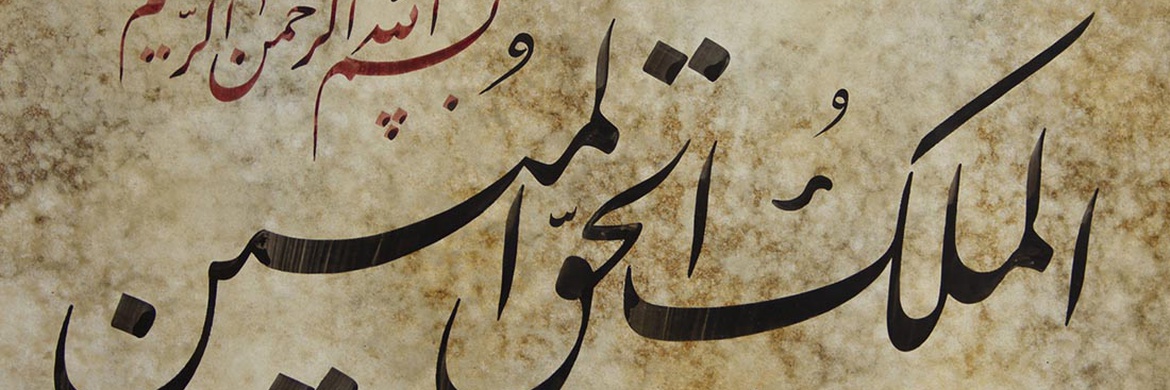 بسم الله الرحمن الرحيم
الملكُ الحقّ المبين